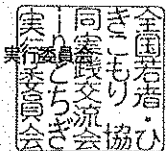 全国若者・ひ
きこもり 協
同実践交流会
inとちぎ
実行委員会
実行委員会